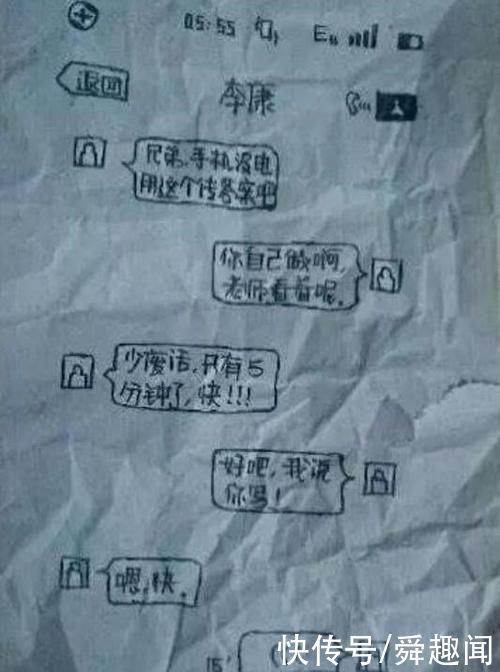 05:55 E
退回
李康
兄弟,手机没电
用这个传答案吧
你自己做啊,
老师看着呢.
少废话,只有5
分钟了,快!!!
好吧,我说
你写!
嗯,快.
15"
快传号/舜趣闻